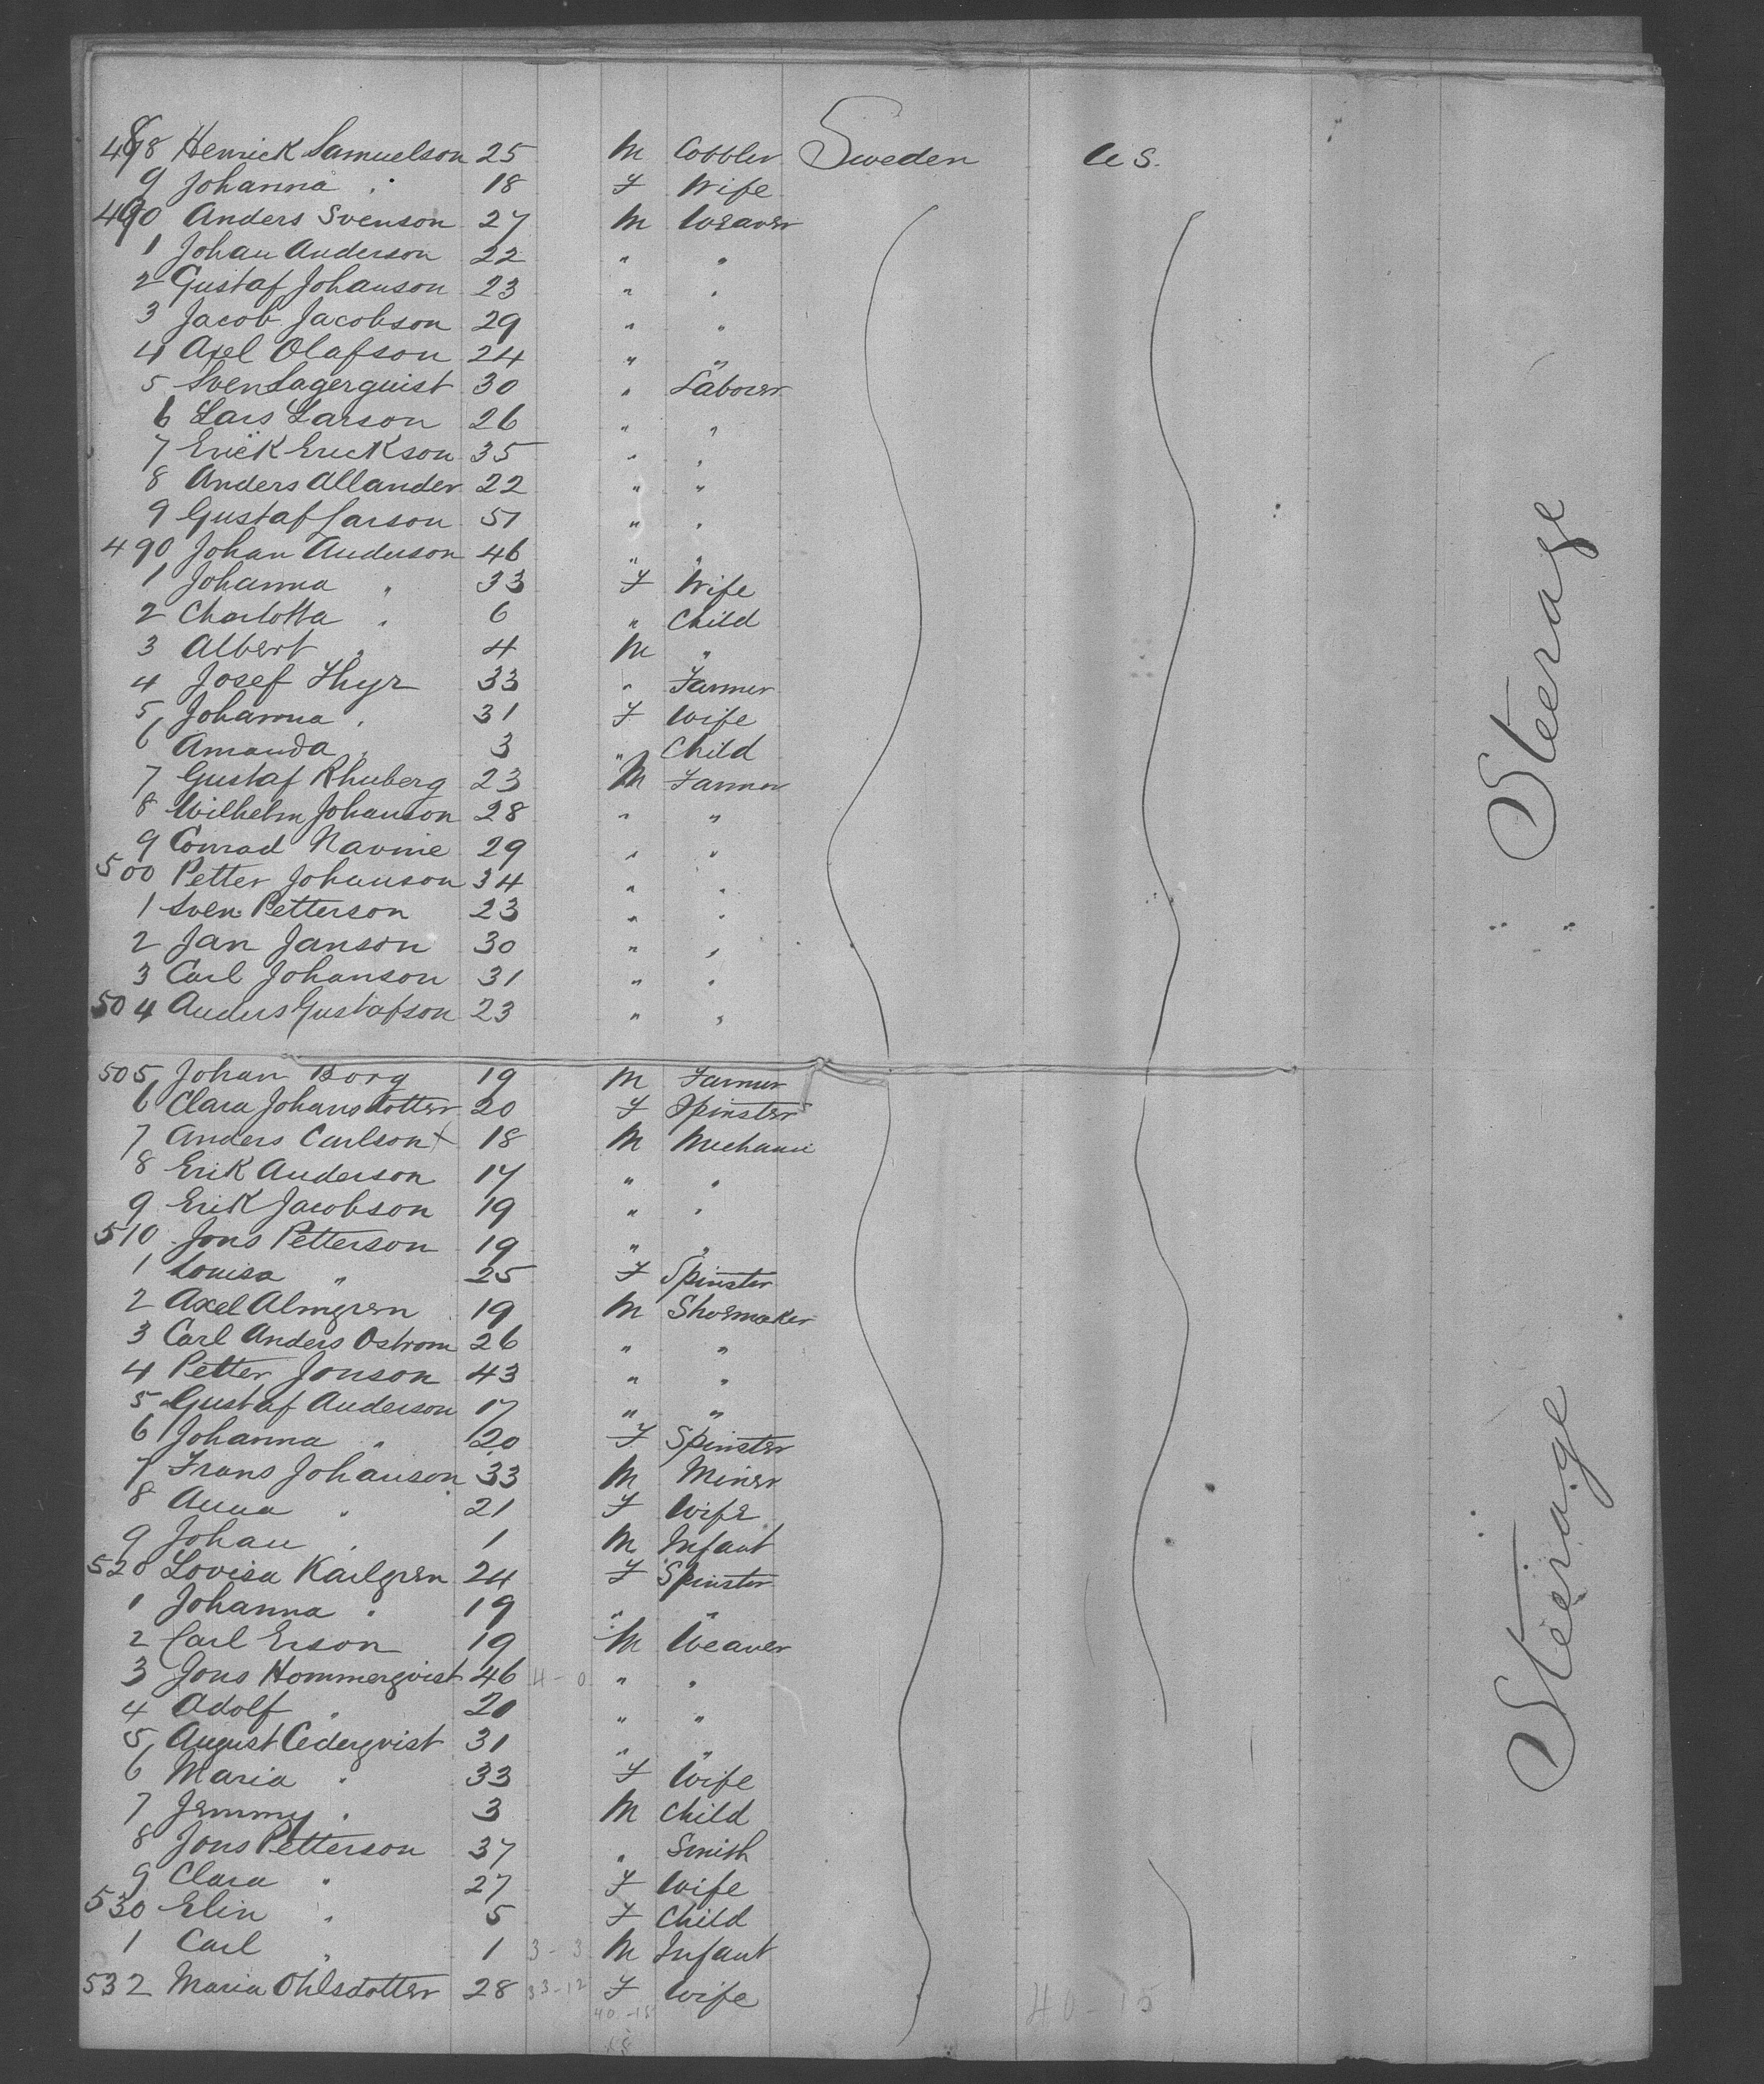 478 Henrick Samuelson 25 M Cobbler Sweden U S.
9 Johanna " 18 F Wife
480 Anders Svenson 27 M Weaver
1 Johan Anderson 22 " "
2 Gustaf Johanson 23 " "
3 Jacob Jacobson 29 " "
4 Axel Olafson 24 " "
5 Sven Lagerquist 30 " Laborer
6 Lars Larson 26 " "
7 Erick Erickson 35 " "
8 Anders Allander 22 " "
9 Gustaf Larson 51 " "
490 Johan Anderson 46 " "
1 Johanna " 33 F Wife
2 Charlotta " 6 " Child
3 Albert " 4 M "
4 Josef Thyr 33 " Farmer
5 Johanna " 31 F Wife
6 Amanda " 3 " Child
7 Gustaf Rhuberg 23 M Farmer
8 Wilhelm Johanson 28 " "
9 Conrad Navine 29 " "
500 Petter Johanson 34 " "
1 Sven Petterson 23 " "
2 Jan Janson 30 " "
3 Carl Johanson 31 " "
504 Anders Gustafson 23 " "
Steerage
505 Johan Borg 19 M Farmer
6 Clara Johansdotter 20 F Spinster
7 Anders Carlson x 18 M Mechanic
8 Erik Anderson 17 " "
9 Erik Jacobson 19 " "
510 Jons Petterson 19 " "
1 Louisa " 25 F Spinster
2 Axel Almgren 19 M Shoemaker
3 Carl Anders Ostrom 26 " "
4 Petter Jonson 43 " "
5 Gustaf Anderson 17 " "
6 Johanna " 20 F Spinster
7 Frans Johanson 33 M Miner
8 Anna " 21 F Wife
9 Johan " 1 M Infant
520 Lovisa Karlgren 24 F Spinster
1 Johanna " 19 " "
2 Carl Erson 19 M Weaver
3 Jons Hommerqvist 46 4-0 " "
4 Adolf " 20 " "
5 August Cederqvist 31 " "
6 Maria " 33 F Wife
7 Jemmy " 3 M Child
8 Jons Petterson 37 " Smith
9 Clara " 27 F Wife
530 Elin " 5 F Child
1 Carl " 1 3-3 M Infant
532 Maria Ohlsdotter 28 33-12 F Wife
40-15 40-15
Steerage